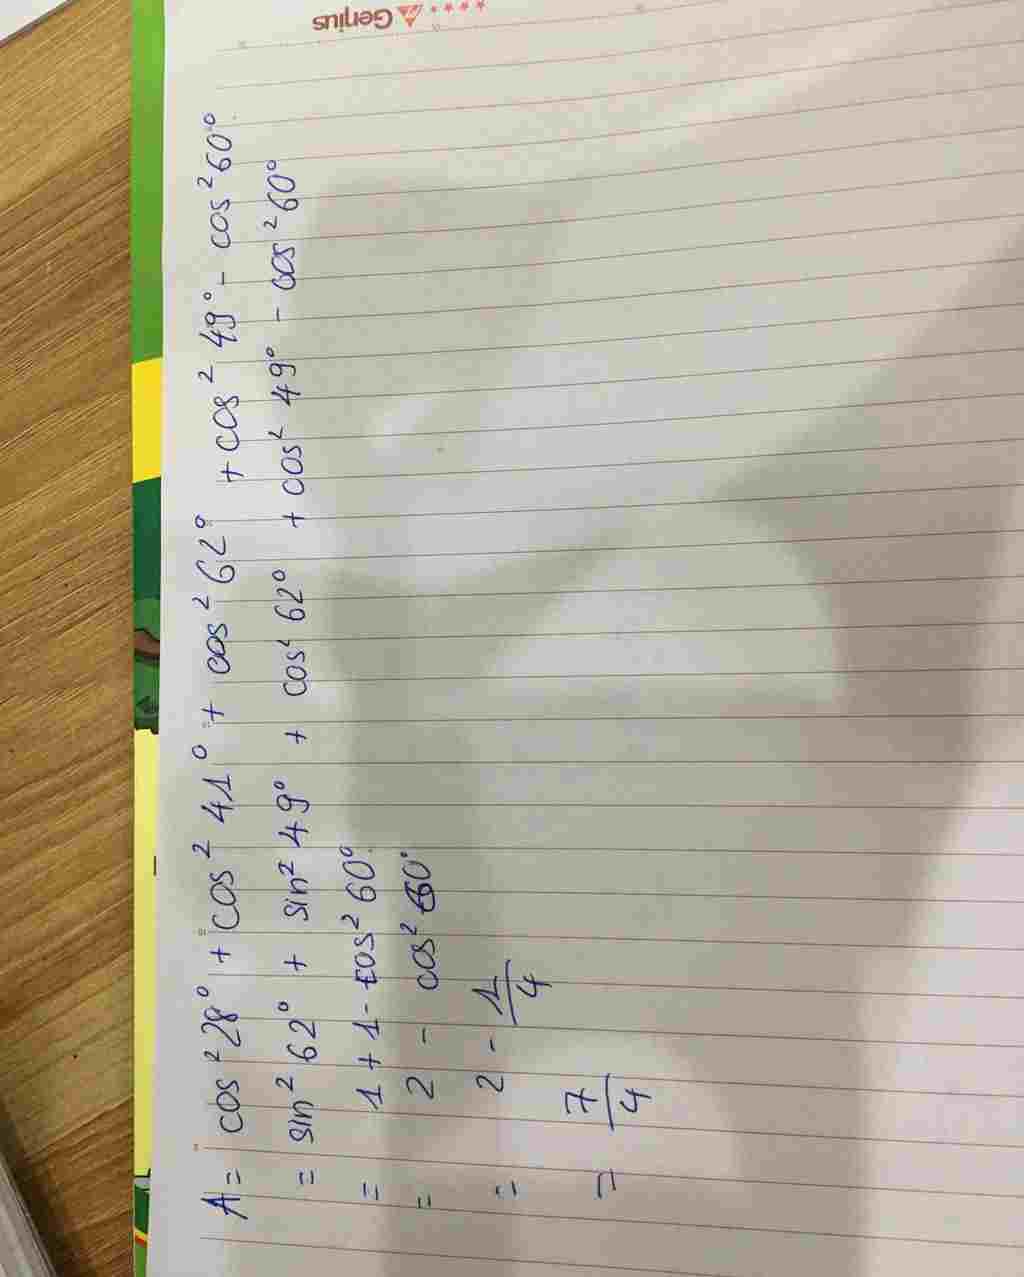 Genius
A = cos² 28° + cos² 41° + cos² 62° + cos² 49° - cos² 60°
= sin² 62° + sin² 49° + cos² 62° + cos² 49° - cos² 60°
= 1 + 1 - cos² 60°
= 2 - cos² 60°
= 2 - 1/4
= 7/4